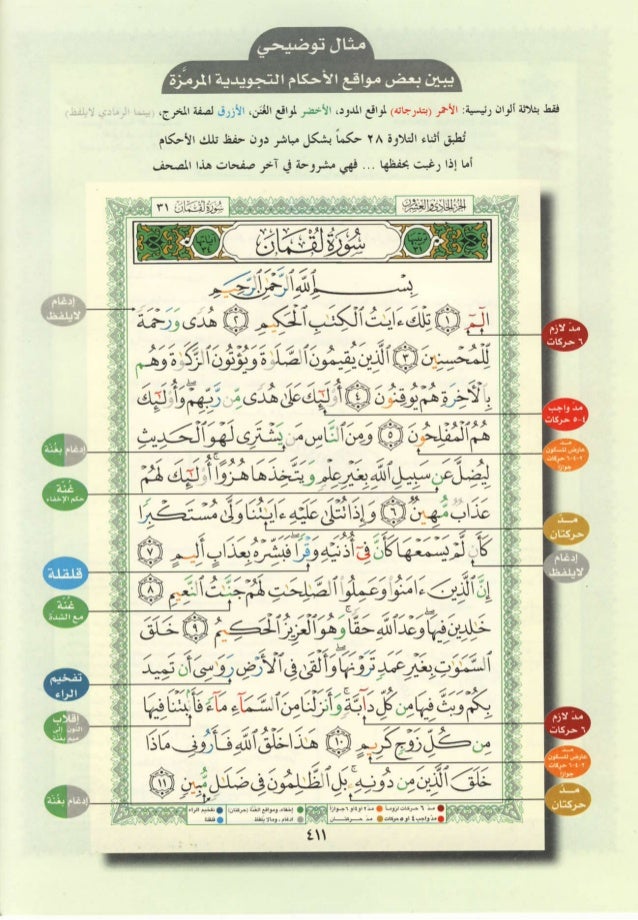 مثال توضيحي
يبين بعض مواقع الأحكام التجويدية المرمزة
فقط بثلاثة ألوان رئيسية: الأحمر (بتدرجاته) لمواقع المدود، الأخضر لمواقع الغنن، الأزرق لصفة المخرج، (بينما الرمادي لا يلفظ)
تُطبق أثناء التلاوة ٢٨ حكماً بشكل مباشر دون حفظ تلك الأحكام
أما إذا رغبت بحفظها ... فهي مشروحة في آخر صفحات هذا المصحف
الجزء الحادي والعشرون
سورة لقمان ٣١
سُورَةُ لُقْمَانَ
بِسْمِ اللَّهِ الرَّحْمَٰنِ الرَّحِيمِ
الٓمٓ ١ تِلْكَ ءَايَٰتُ الْكِتَٰبِ الْحَكِيمِ ٢ هُدًى وَرَحْمَةً
لِّلْمُحْسِنِينَ ٣ الَّذِينَ يُقِيمُونَ الصَّلَوٰةَ وَيُؤْتُونَ الزَّكَوٰةَ وَهُم
بِالْءَاخِرَةِ هُمْ يُوقِنُونَ ٤ أُوْلَٰٓئِكَ عَلَىٰ هُدًى مِّن رَّبِّهِمْ وَأُوْلَٰٓئِكَ
هُمُ الْمُفْلِحُونَ ٥ وَمِنَ النَّاسِ مَن يَشْتَرِى لَهْوَ الْحَدِيثِ
لِيُضِلَّ عَن سَبِيلِ اللَّهِ بِغَيْرِ عِلْمٍ وَيَتَّخِذَهَا هُزُوًا أُوْلَٰٓئِكَ لَهُمْ
عَذَابٌ مُّهِينٌ ٦ وَإِذَا تُتْلَىٰ عَلَيْهِ ءَايَٰتُنَا وَلَّىٰ مُسْتَكْبِرًا
كَأَن لَّمْ يَسْمَعْهَا كَأَنَّ فِىٓ أُذُنَيْهِ وَقْرًا فَبَشِّرْهُ بِعَذَابٍ أَلِيمٍ ٧
إِنَّ الَّذِينَ ءَامَنُوا وَعَمِلُوا الصَّٰلِحَٰتِ لَهُمْ جَنَّٰتُ النَّعِيمِ ٨
خَٰلِدِينَ فِيهَا وَعْدَ اللَّهِ حَقًّا وَهُوَ الْعَزِيزُ الْحَكِيمُ ٩ خَلَقَ
السَّمَٰوَٰتِ بِغَيْرِ عَمَدٍ تَرَوْنَهَا وَأَلْقَىٰ فِى الْأَرْضِ رَوَٰسِىَ أَن تَمِيدَ
بِكُمْ وَبَثَّ فِيهَا مِن كُلِّ دَآبَّةٍ وَأَنزَلْنَا مِنَ السَّمَآءِ مَآءً فَأَنۢبَتْنَا فِيهَا
مِن كُلِّ زَوْجٍ كَرِيمٍ ١٠ هَٰذَا خَلْقُ اللَّهِ فَأَرُونِى مَاذَا
خَلَقَ الَّذِينَ مِن دُونِهِ بَلِ الظَّٰلِمُونَ فِى ضَلَٰلٍ مُّبِينٍ ١١
مد لازم
٦ حركات
مد واجب
٤-٥ حركات
مد
عارض للسكون
٢-٤-٦ حركات
جوازاً
مد
حركتان
إدغام
لا يلفظ
مد لازم
٦ حركات
مد
عارض للسكون
٢-٤-٦ حركات
جوازاً
مد
حركتان
إدغام
لا يلفظ
إدغام بغنة
غنة
حكم الإخفاء
قلقلة
غنة
مع الشدة
تفخيم
الراء
إقلاب
النون إلى
ميم بغنة
إدغام بغنة
مد ٦ حركات لزوماً
مد ٢ او ٤ او ٦ جوازاً
إخفاء، ومواقع الغنة (حركتان)
تفخيم الراء
مد واجب ٤ او ٥ حركات
مد حركتان
إدغام، وما لا يلفظ
قلقلة
٤١١